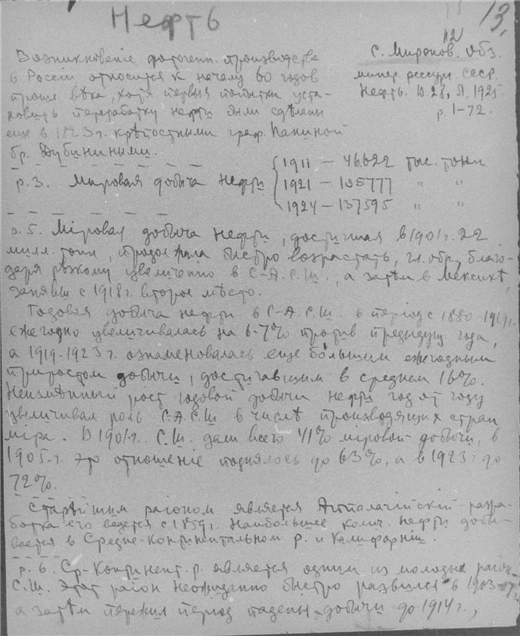 Нефть
13.
12
Возникновение фотоген. производства
в России относится к началу 60 годов
прошл. вѣка, хотя первыя попытки уста-
новить переработку нефти были сдѣланы
еще в 1823 г. крѣпостными граф. Паниной
бр. Дубиниными.
С. Миронов. Обз.
минер. рессурс. СССР.
Нефть. В. 28, Л. 1925
p. 1-72.
p. 3. Мировая добыча нефти
1911 — 46622 тыс. тонн
1921 — 105777 " "
1924 — 137595 " "
p. 5. Мiровая добыча нефти, достигшая в 1901 г. 22
милл. тонн, продолжала быстро возрастать, гл. обр. благо-
даря рѣзкому увеличению в С-А.С.Ш., а затѣм в Мексикѣ,
занявш. с 1918 г. второе мѣсто.
Годовая добыча нефти в С-А.С.Ш. в период с 1880-1919 г.
ежегодно увеличивалась на 6-7% против предыдущ. года,
а 1919-1923 г. ознаменовалась еще бо́льшим ежегодным
приростом добычи, достигавшим в среднем 16%.
Неизменный рост годовой добычи нефти год от году
увеличивал роль С.А.С.Ш. в числѣ производящих стран
мiра. В 1901 г. С.Ш. дали всего 41% мiровой добычи, в
1905 г. это отношенiе поднялось до 63%, а в 1923 г. до
72%.
Старѣйшим районом является Аппалачiйскiй - разра-
ботка его ведется с 1859 г. Наибольшее колич. нефти добы-
вается в Средне-континентальном р. и Калифорнiи.
p. 6. Ср-Континент. р. является одним из молодых район.
С.Ш. Этот район неожиданно быстро развился в 1903-07,
а затѣм пережил период паденья добычи до 1914 г.,